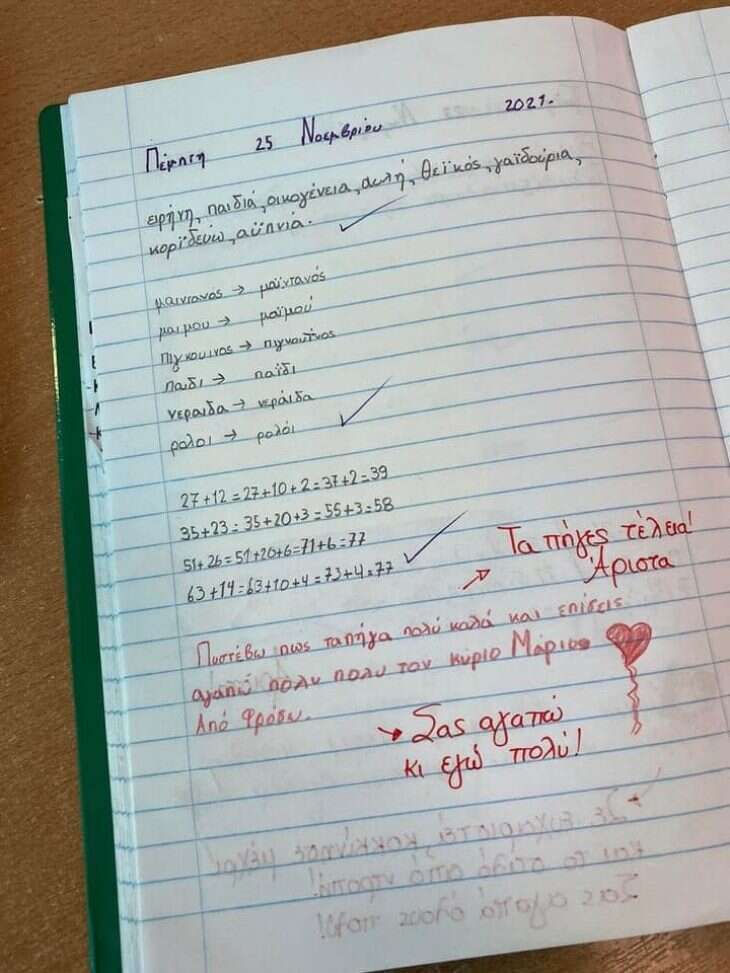 Πέμπτη 25 Νοεμβρίου 2021.
ειρήνη, παιδιά, οικογένεια, αυλή, θεϊκός, γαϊδούρια,
κοροϊδεύω, αϋπνία.
μαιντανος → μαϊντανός
μαιμου → μαϊμού
πιγκουινος → πιγκουΐνος
παιδι → παϊδι
νεραιδα → νεράιδα
ρολοι → ρολόι
27+12=27+10+2=37+2=39
35+23=35+20+3=55+3=58
51+26=51+20+6=71+6=77
63+14=63+10+4=73+4=77
Τα πήγες τέλεια!
Άριστα
Πιστέβω πως τα πήγα πολύ καλά και επίσεις
αγαπώ πολυ πολυ τον κύριο Μάριο
Από Φρόσω.
Σας αγαπώ
κι εγώ πολύ!